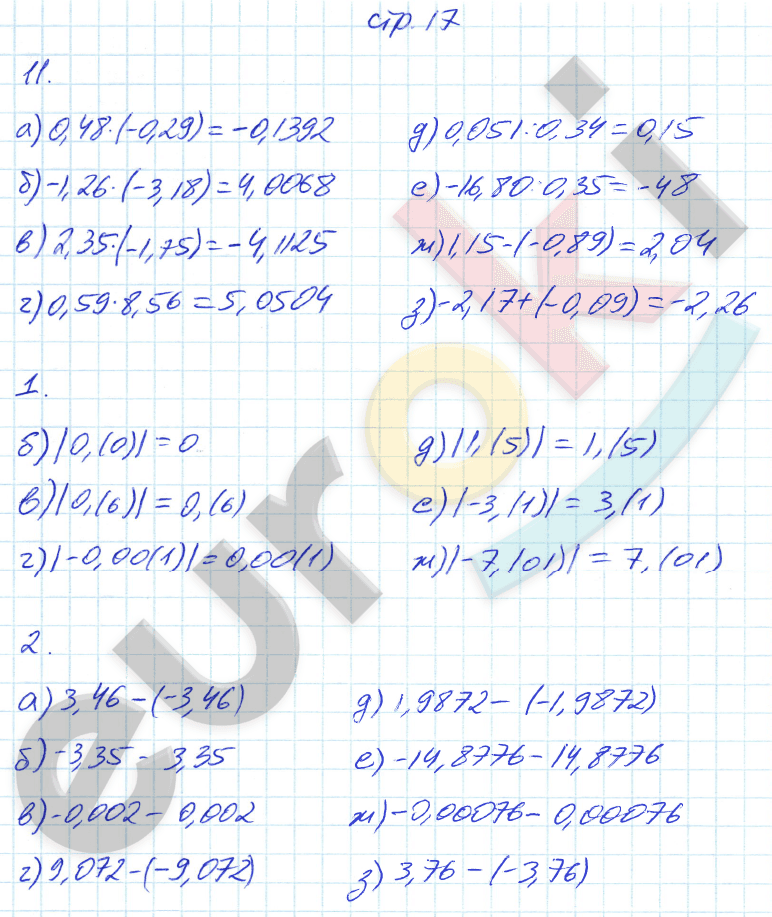 стр. 17
11.
а) 0,48·(-0,29) = -0,1392
б) -1,26·(-3,18) = 4,0068
в) 2,35·(-1,75) = -4,1125
г) 0,59·8,56 = 5,0504
д) 0,051:0,34 = 0,15
е) -16,80:0,35 = -48
ж) 1,15-(-0,89) = 2,04
з) -2,17+(-0,09) = -2,26
1.
б) |0,(0)| = 0
в) |0,(6)| = 0,(6)
г) |-0,00(1)| = 0,00(1)
д) |1,(5)| = 1,(5)
е) |-3,(1)| = 3,(1)
ж) |-7,(01)| = 7,(01)
2.
а) 3,46 - (-3,46)
б) -3,35 - 3,35
в) -0,002 - 0,002
г) 9,072 - (-9,072)
д) 1,9872 - (-1,9872)
е) -14,8776 - 14,8776
ж) -0,00076 - 0,00076
з) 3,76 - (-3,76)
euroki